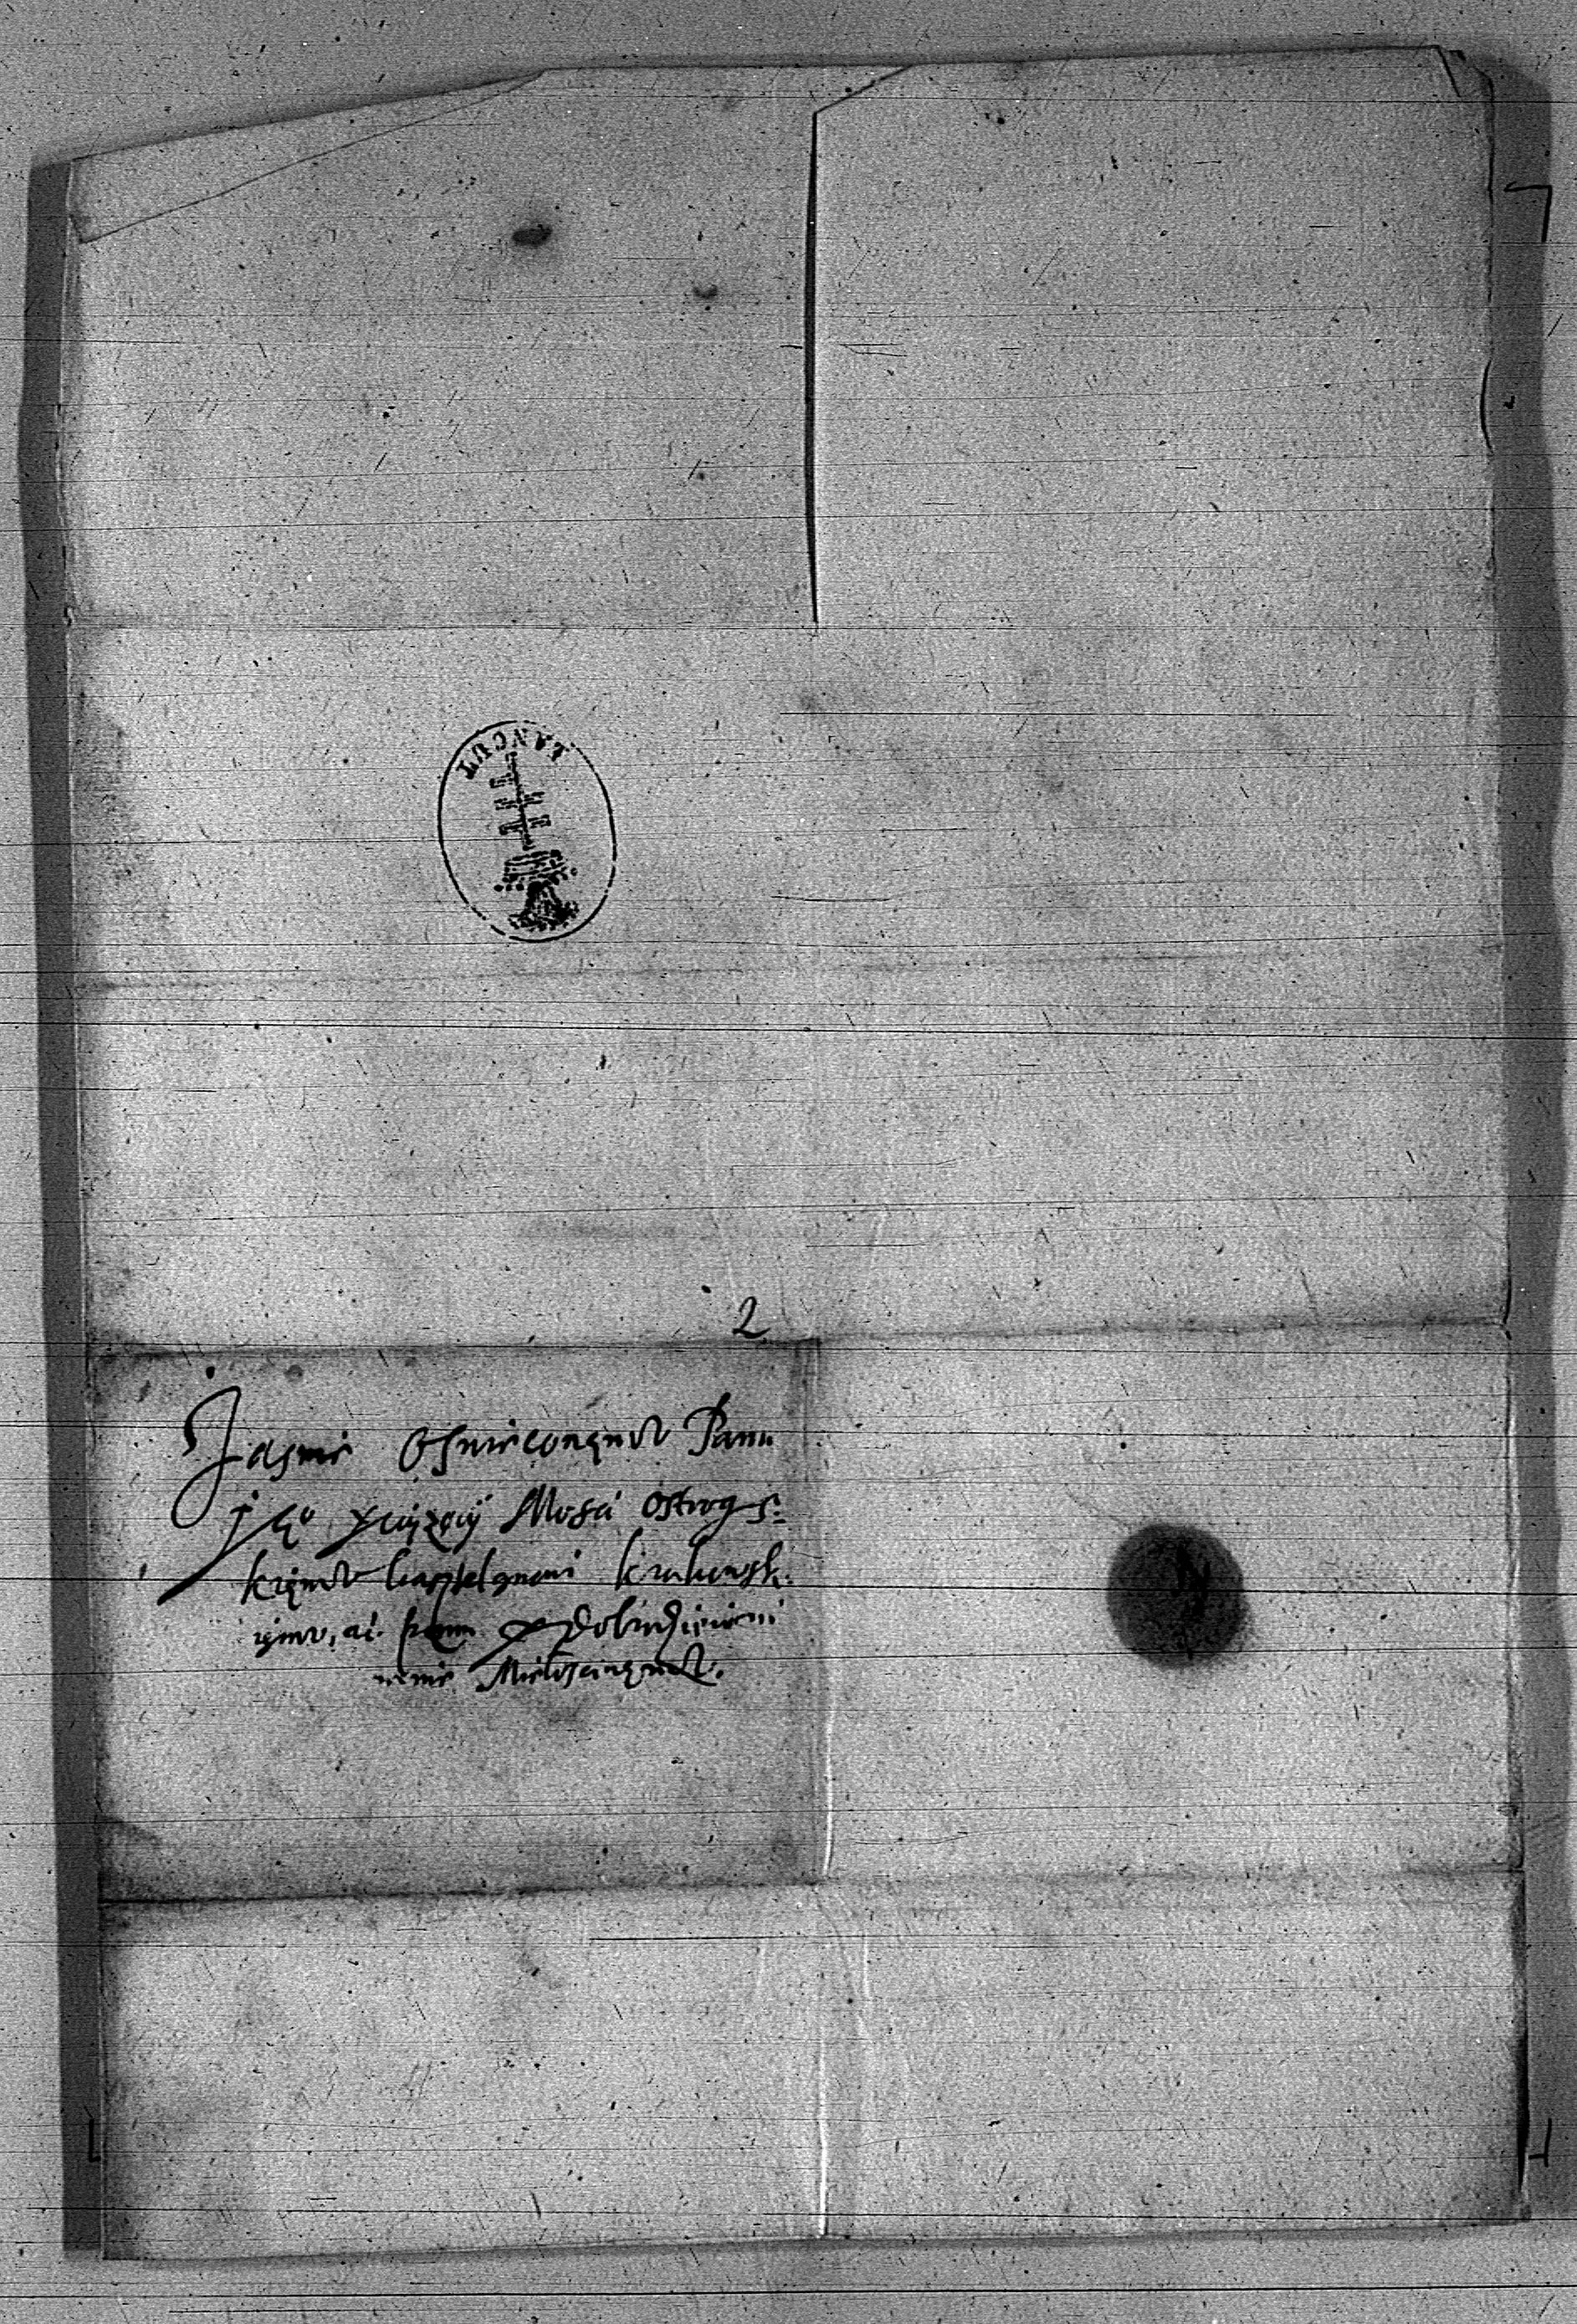 ŁANCUT
2
Jasnie Oswieconemv Panu
Je° Xiążęcij Mosci Ostrogs=
kiemv Casztelanowi krakowsk:
iemv, ac. panu Dobrodzieiowi
memv Miłosciwemv.